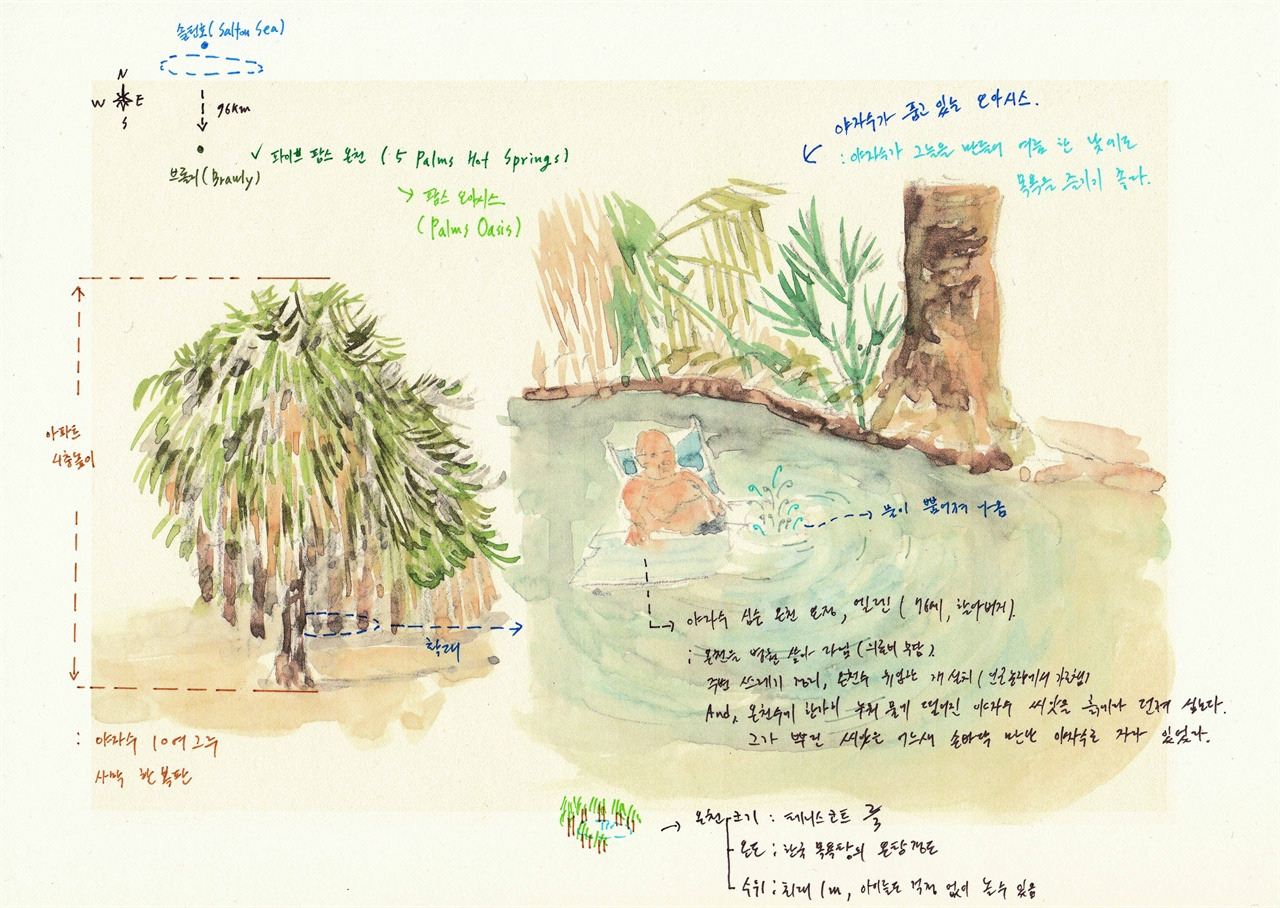 솔턴호(Salton Sea)
N
W E
S
96km
브롤리(Brawly)
✓ 파이브 팜스 온천 (5 Palms Hot Springs)
↘ 팜스 오아시스
(Palms Oasis)
야자수가 품고 있는 오아시스.
: 야자수가 그늘을 만들어 여름 한 낮에도
목욕을 즐기기 좋다.
아파트
4층높이
물이 뿜어져 나옴
확대
야자수 심는 온천 요정, 엘렌 (76세, 할아버지).
: 온천을 벗삼아 살아 (의료비 부담).
주변 쓰레기 정리, 온천수
And, 온천수에 한가히 누워 물에 떨어진 야자수 씨앗을 흙에다 던져 심는다.
그가 뿌린 씨앗은 어느새 손바닥 만한 야자수로 자라 있었다.
: 야자수 10여 그루
사막 한복판
→ 온천 크기 : 테니스코트
온도 : 한국 목욕탕의 온탕 정도
수위 : 최대 1m, 아이들도 걱정 없이 놀수 있음